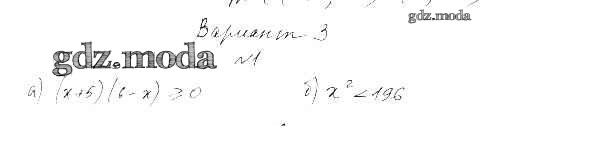 gdz.moda
Вариант 3
gdz.moda №1
а) (x+5)(6-x) ≥ 0 б) x² < 196